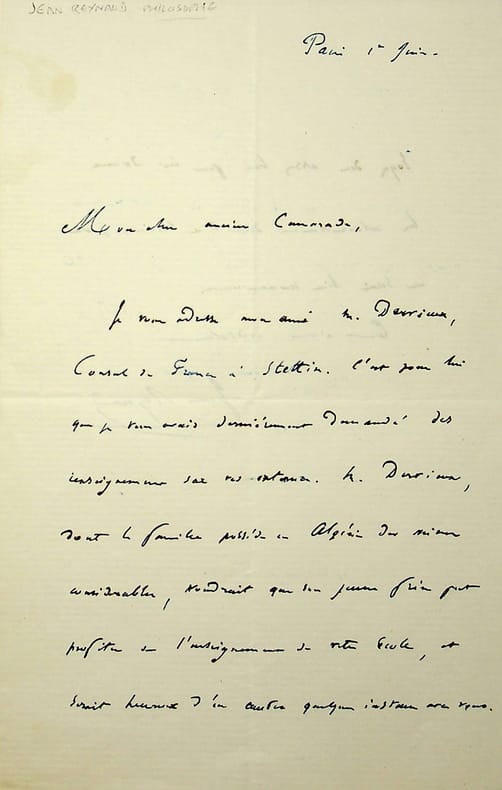 JEAN REYNAUD PHILOSOPHE
Paris 1er Juin.
Mon cher ancien Camarade,
Je vous adresse mon ami M. Derrieux,
Consul de France à Stettin. C'est pour lui
que je vous avais dernièrement demandé des
renseignements sur vos externes. M. Derrieux,
dont la famille possède en Algérie des mines
considérables, voudrait que son jeune frère put
profiter de l'enseignement de votre Ecole, et
serait heureux d'en causer quelques instans avec vous.